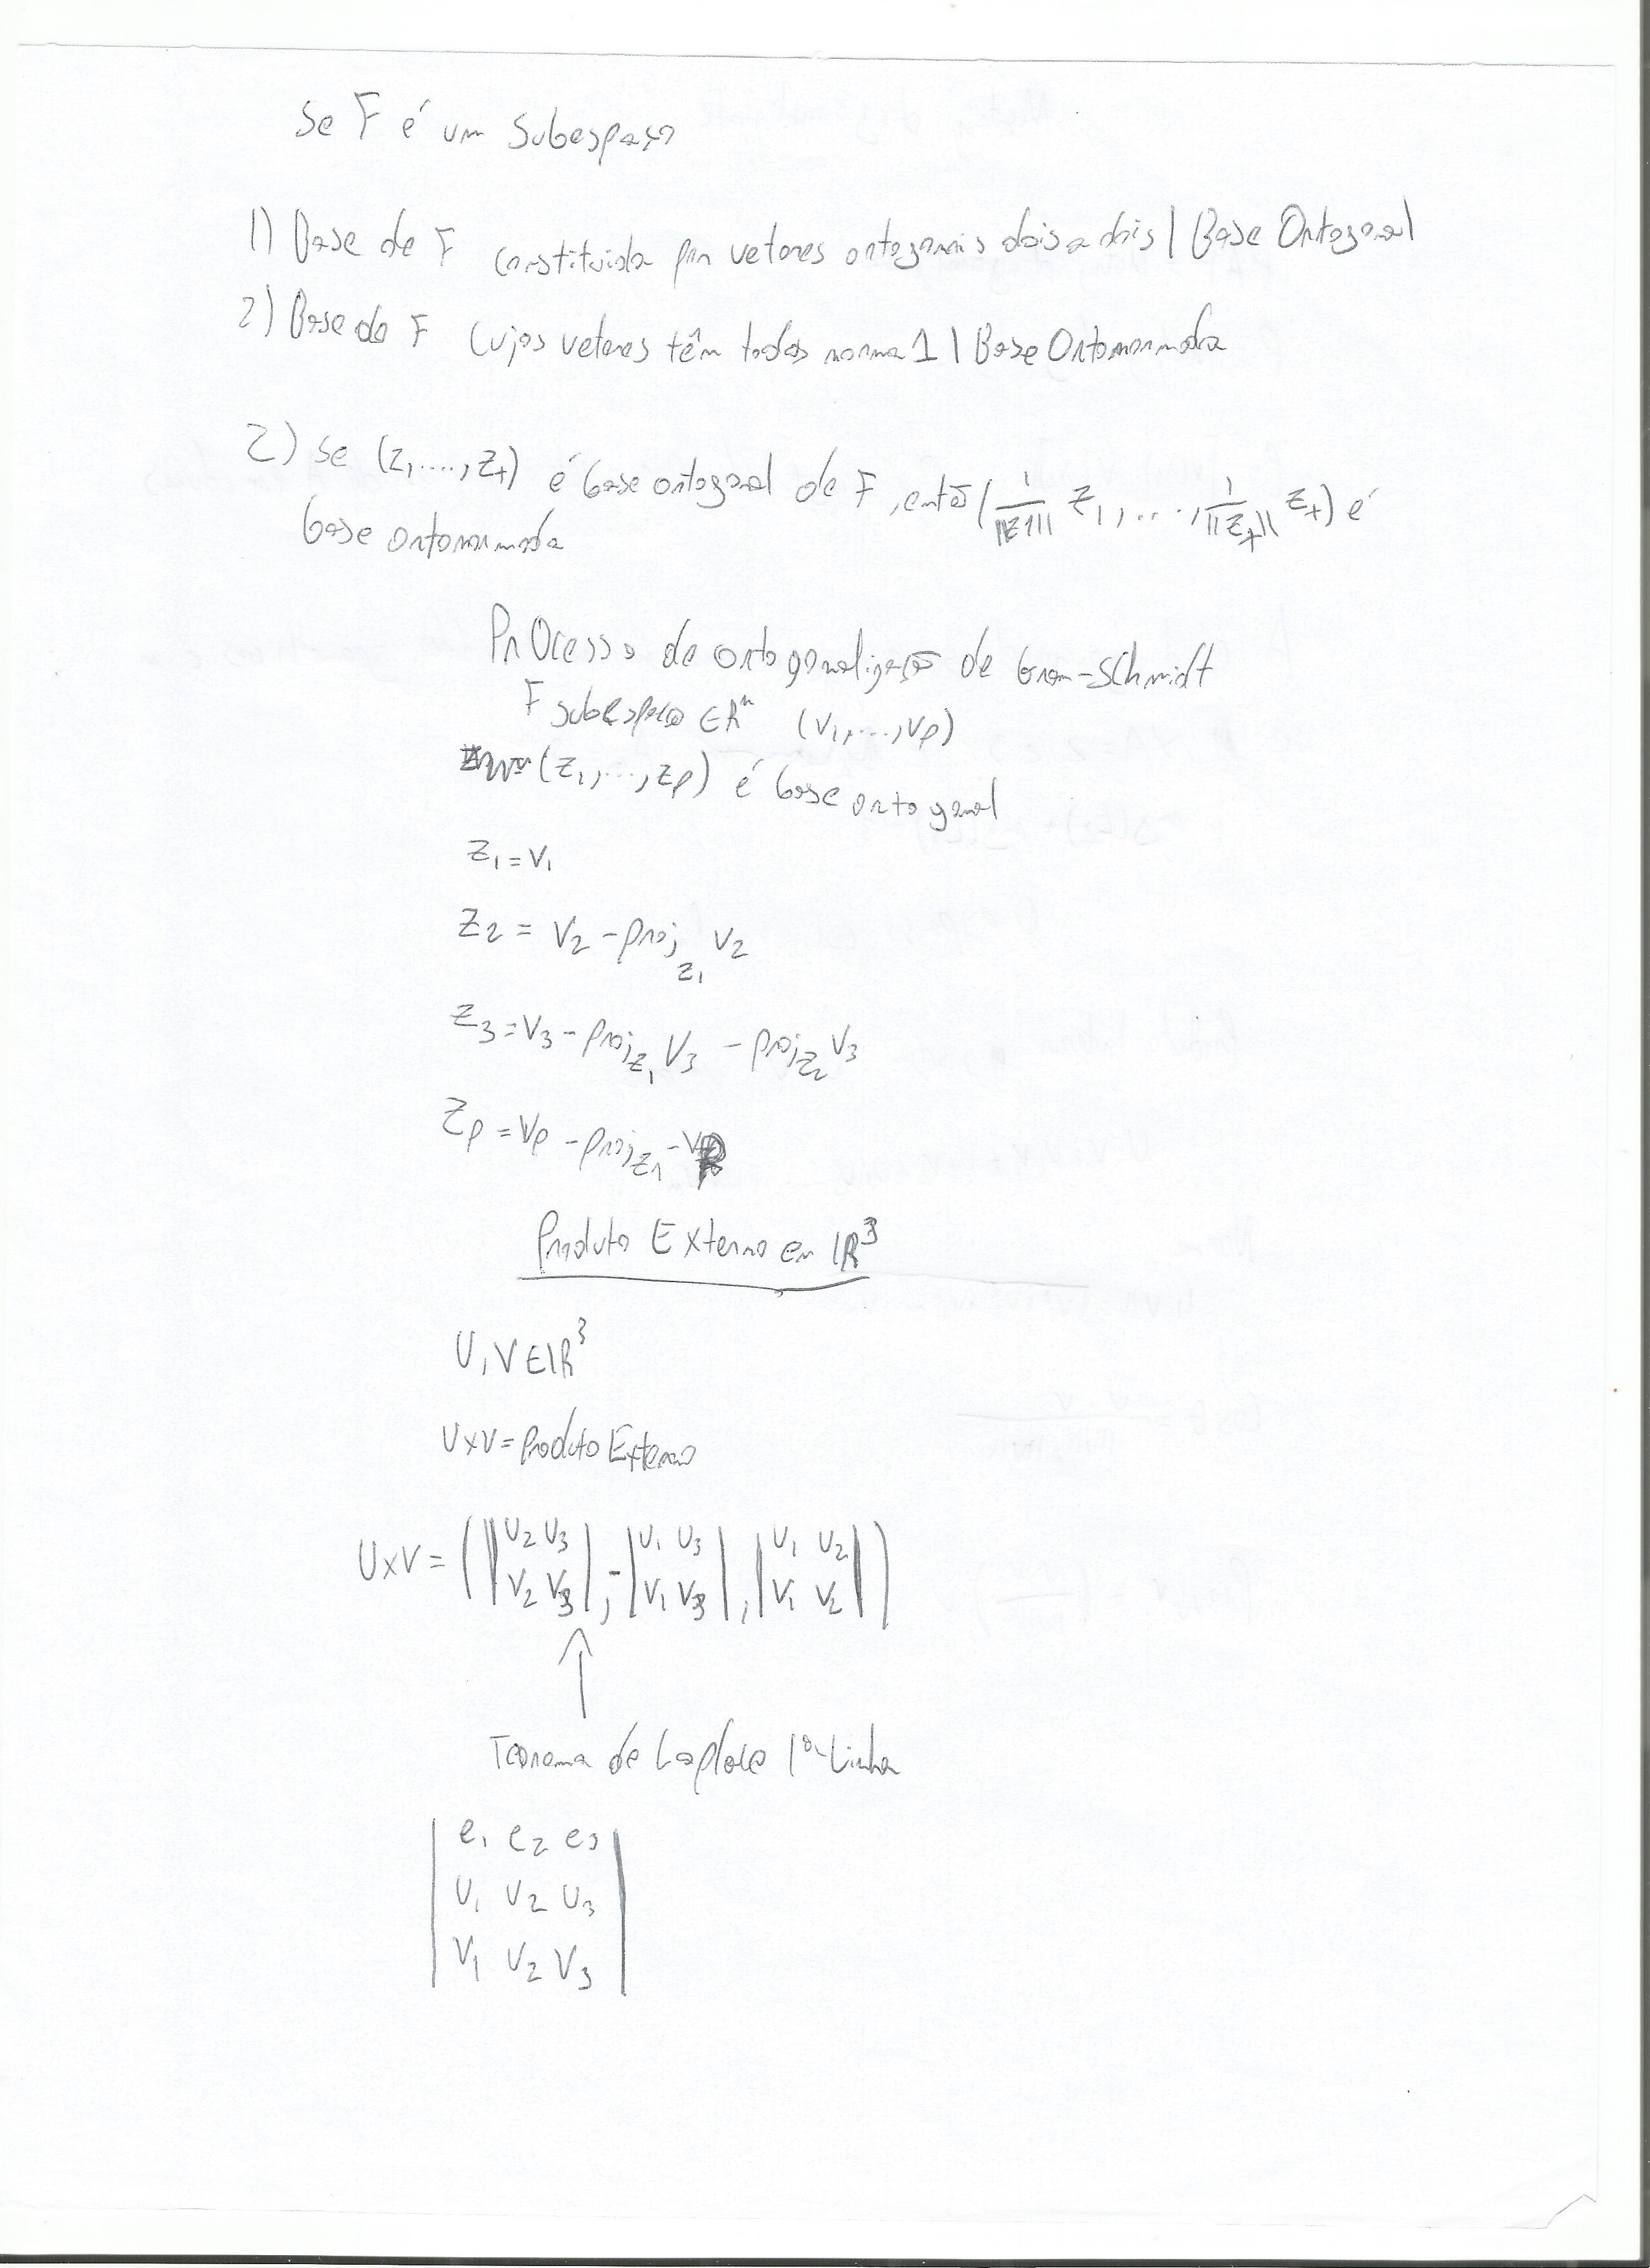 Se F é um Subespaço
1) Base de F constituida por vetores ortogonais dois a dois | Base Ortogonal
2) Base de F cujos vetores têm todos norma 1 | Base Ortonormada
2) Se (z,....,z+) é base ortogonal de F, então (1/||z1|| z1,...,1/||z+|| z+) é
base ortonormada
PrOcesso de ortogonalização de Gram-Schmidt
F subespaço ∈ℝⁿ (v1,...,vp)
(z1,...,zp) é base ortogonal
z1 = v1
z2 = v2 - proj z1 v2
z3 = v3 - proj z1 v3 - proj z2 v3
zp = vp - proj z1 - v
Produto Externo em ℝ³
U,V∈ℝ³
UxV = Produto Externo
UxV = (|U2 U3|,-|U1 U3|,|U1 U2|)
|V2 V3| |V1 V3| |V1 V2|
Teorema de Laplace 1ª Linha
|e1 e2 e3|
|U1 U2 U3|
|V1 V2 V3|